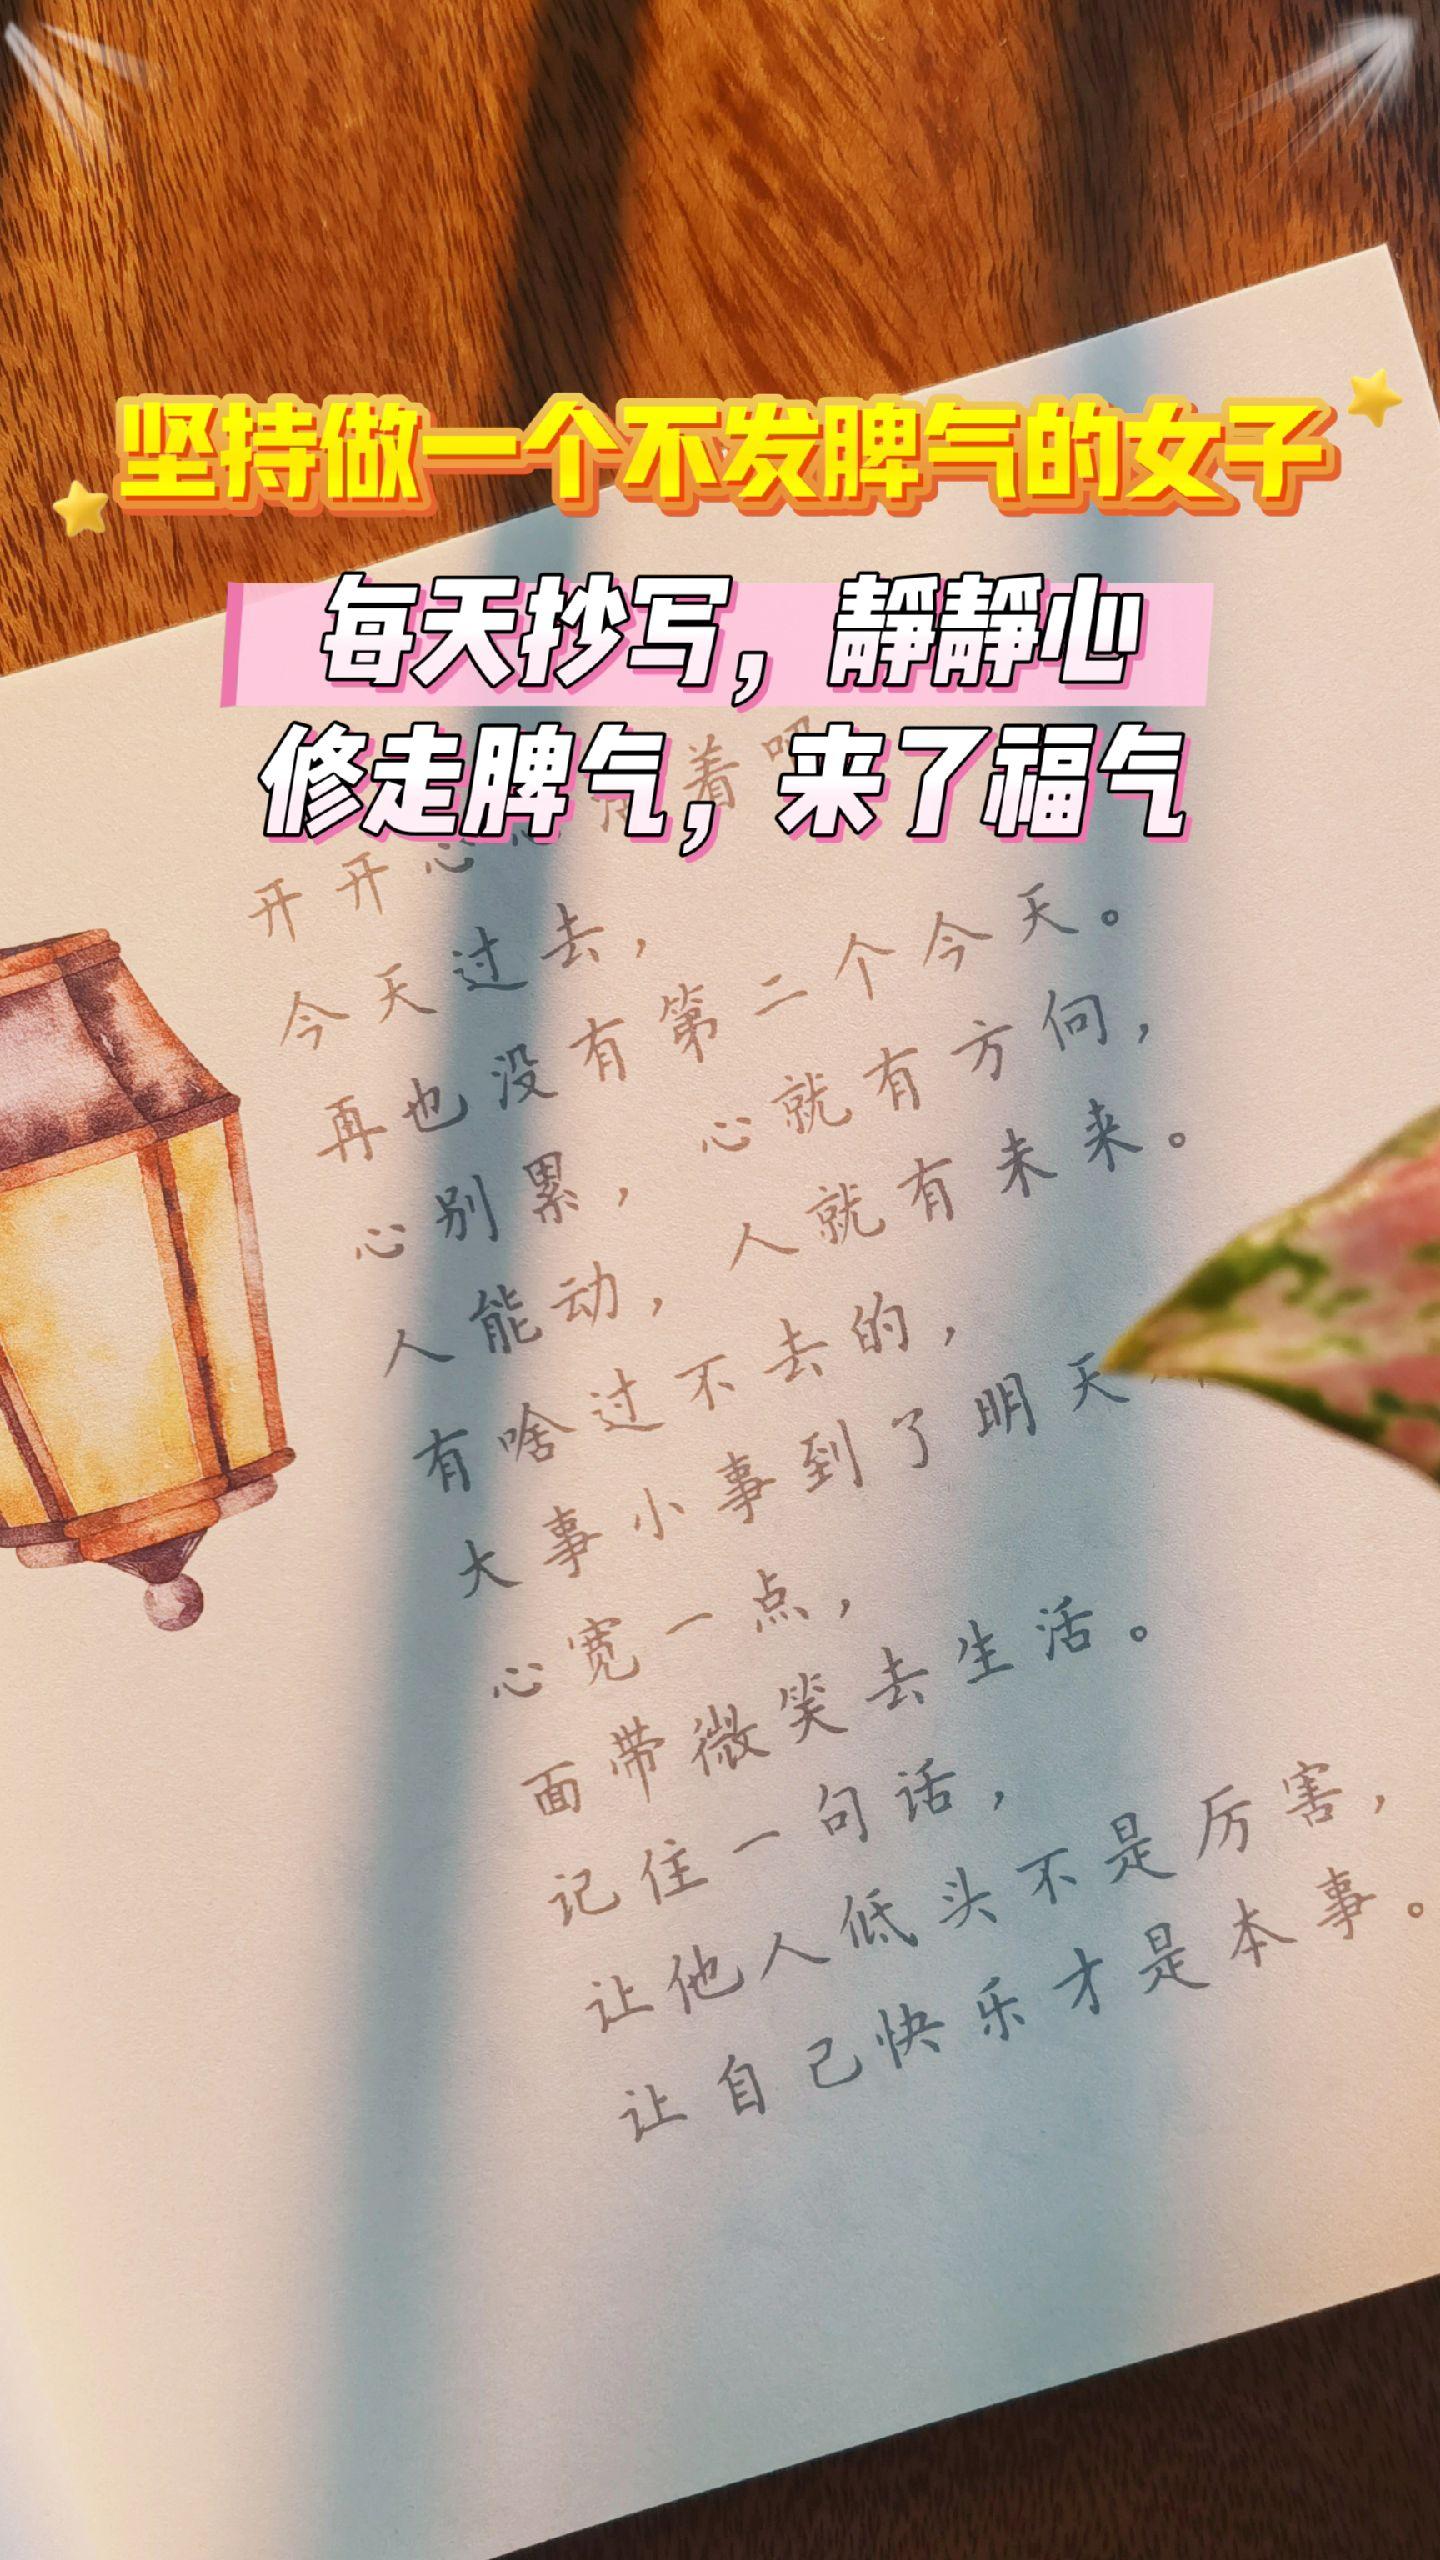 坚持做一个不发脾气的女子
每天抄写，静静心
修走脾气，来了福气
开开心
着
今天过去，
再也没有第二个今天。
心别累，心就有方向，
人能动，人就有未来。
有啥过不去的，
大事小事到了明天
心宽一点，
面带微笑去生活。
记住一句话，
让他人低头不是厉害，
让自己快乐才是本事。